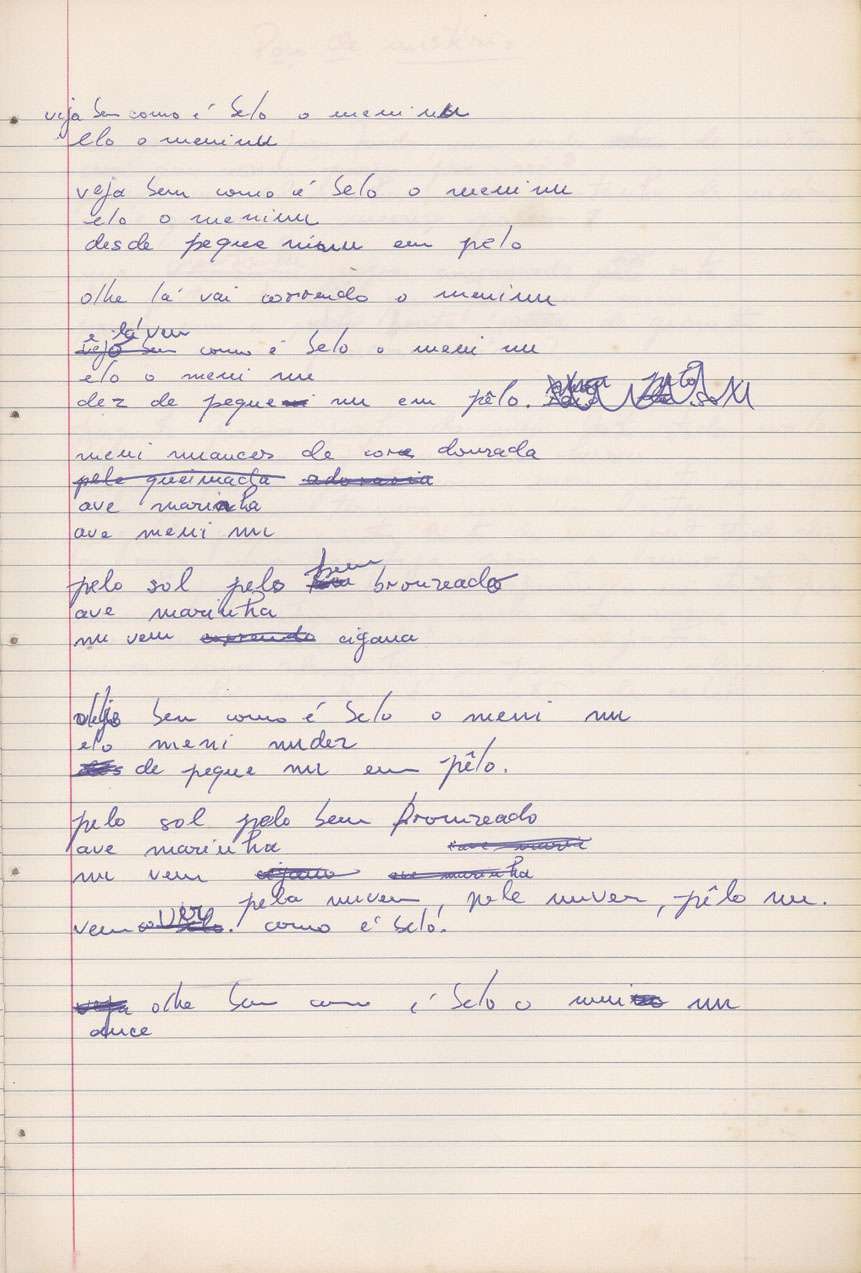 veja bem como é belo o meninu
elo o meninu
veja bem como é belo o meninu
elo o meninu
desde pequeninu em pelo
olhe lá vai correndo o meninu
ê lá vem
como é belo o meni nu
elo o meni nu
dez de peque nu em pêlo.
meni nuances de core dourada
pele queimada
ave marinha
ave meni nu
pelo sol pelo bem bronzeado
ave marinha
nu vem correndo cigana
bem como é belo o meni nu
elo meni nudez
de peque nu em pêlo.
pelo sol pelo bem bronzeado
ave marinha ave mari
nu vem cigana ave marinha
pela nuvem, pele nuver, pêlo nu.
vem ver. como é belo!
veja olhe bem como é belo o meni nu